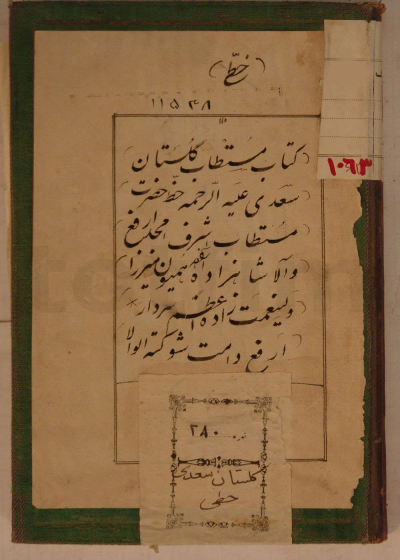 (خطّی)
۱۱۵۴۸
۱۰۶۳
کتاب مستطاب گلستان
سعدی علیه الرحمه خط حضرت
مستطاب اشرف امجد ارفع
والا شاهزاده همیون میرزا
ولیعهد زاده اعظم سردار
ارفع دامت شوکته الوالا
نمره ۲۸۰
گلستان سعدی
خطی